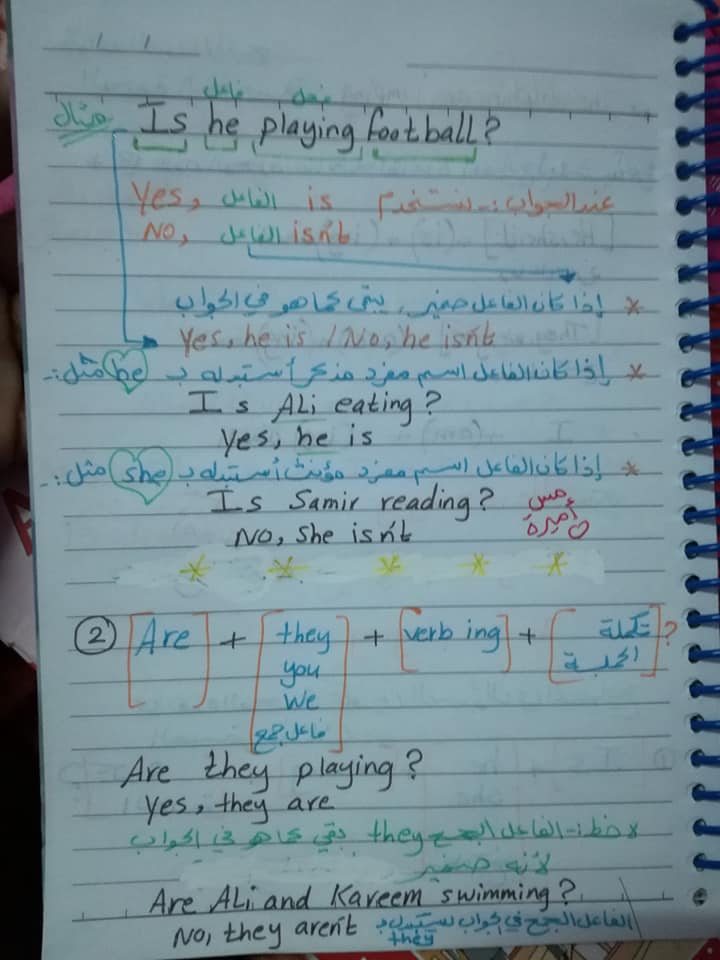 فاعل فعل
مثال Is he playing football?
عند الجواب :- نستخدم Yes, الفاعل is
No, الفاعل isn't
* إذا كان الفاعل ضمير، يبقى كما هو في الجواب
Yes, he is / No, he isn't
* إذا كان الفاعل اسم مفرد مذكر أستبدله بـ he مثل :-
Is Ali eating?
Yes, he is
* إذا كان الفاعل اسم مفرد مؤنث أستبدله بـ she مثل :-
Is Samir reading? مس
No, She isn't أميرة
② [Are] + [they + [verb ing] + [تكملة ?
you الجملة]
We
فاعل جمع]
Are they playing?
Yes, they are
لاحظ :- الفاعل الجمع they بقي كما هو في الجواب
لأنه ضمير
Are Ali and Kareem swimming?
No, they aren't الفاعل الجمع في جواب نستبدل بـ
they